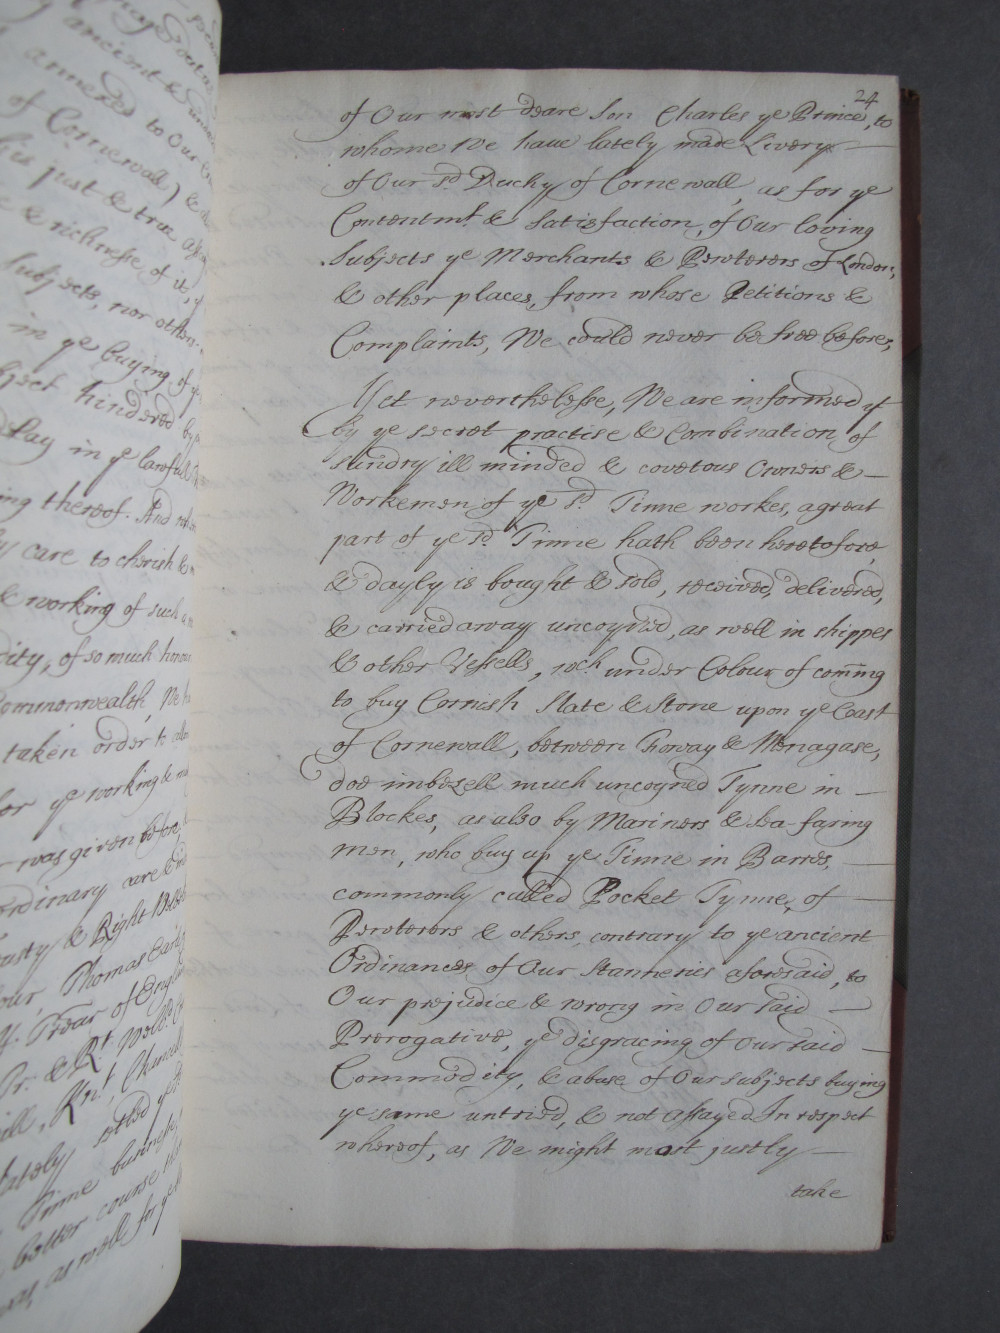 ancient &
annexed to Our
of Cornewall) &
his just & true
& richnesse of it, y
Subjects, nor others
in ye buying of y
bject hindered by
Delay in ye lawfull
ing thereof. And
care to cherish &
& working of such
dity, of so much honour
Commonwealth, We
taken order to
for ye working &
was given before
ordinary care &
rusty & Right
our Thomas Earle
H. Trear of England
Pr. & Rt. Woll.
ill, Knt. Chancell
lately
Tinne businesse,
better course
as well for ye
24
of Our most deare Son Charles ye Prince, to
whome We have lately made Livery
of Our sd. Duchy of Cornewall, as for ye
Contentmt. & satisfaction, of Our loving
Subjects ye Merchants & Pewterers of London,
& other places, from whose Petitions &
Complaints, We could never be free before,
Yet neverthelesse, We are informed yt
by ye secret practise & Combination of
sundry ill minded & covetous Owners &
Workemen of ye sd. Tinne workes, a great
part of ye sd. Tinne hath been heretofore,
& dayly is bought & sold, received, delivered,
& carried away uncoyned, as well in shippes
& other Vessells, wch. under Colour of com̄ing
to buy Cornish Slate & Stone upon ye Coast
of Cornewall, between Foway & Menagase,
doe imbesell much uncoyned Tynne in
Blockes, as also by Mariners & Sea-faring
men, who buy up ye Tinne in Barres,
commonly called Pocket Tynne, of
Pewterers & others, contrary to ye ancient
Ordinances of Our Stanneries aforesaid, to
Our prejudice & wrong in Our said
Prerogative, ye disgracing of Our said
Commodity, & abuse of Our subjects buying
ye same untried, & not assayed In respect
whereof, as We might most justly
take